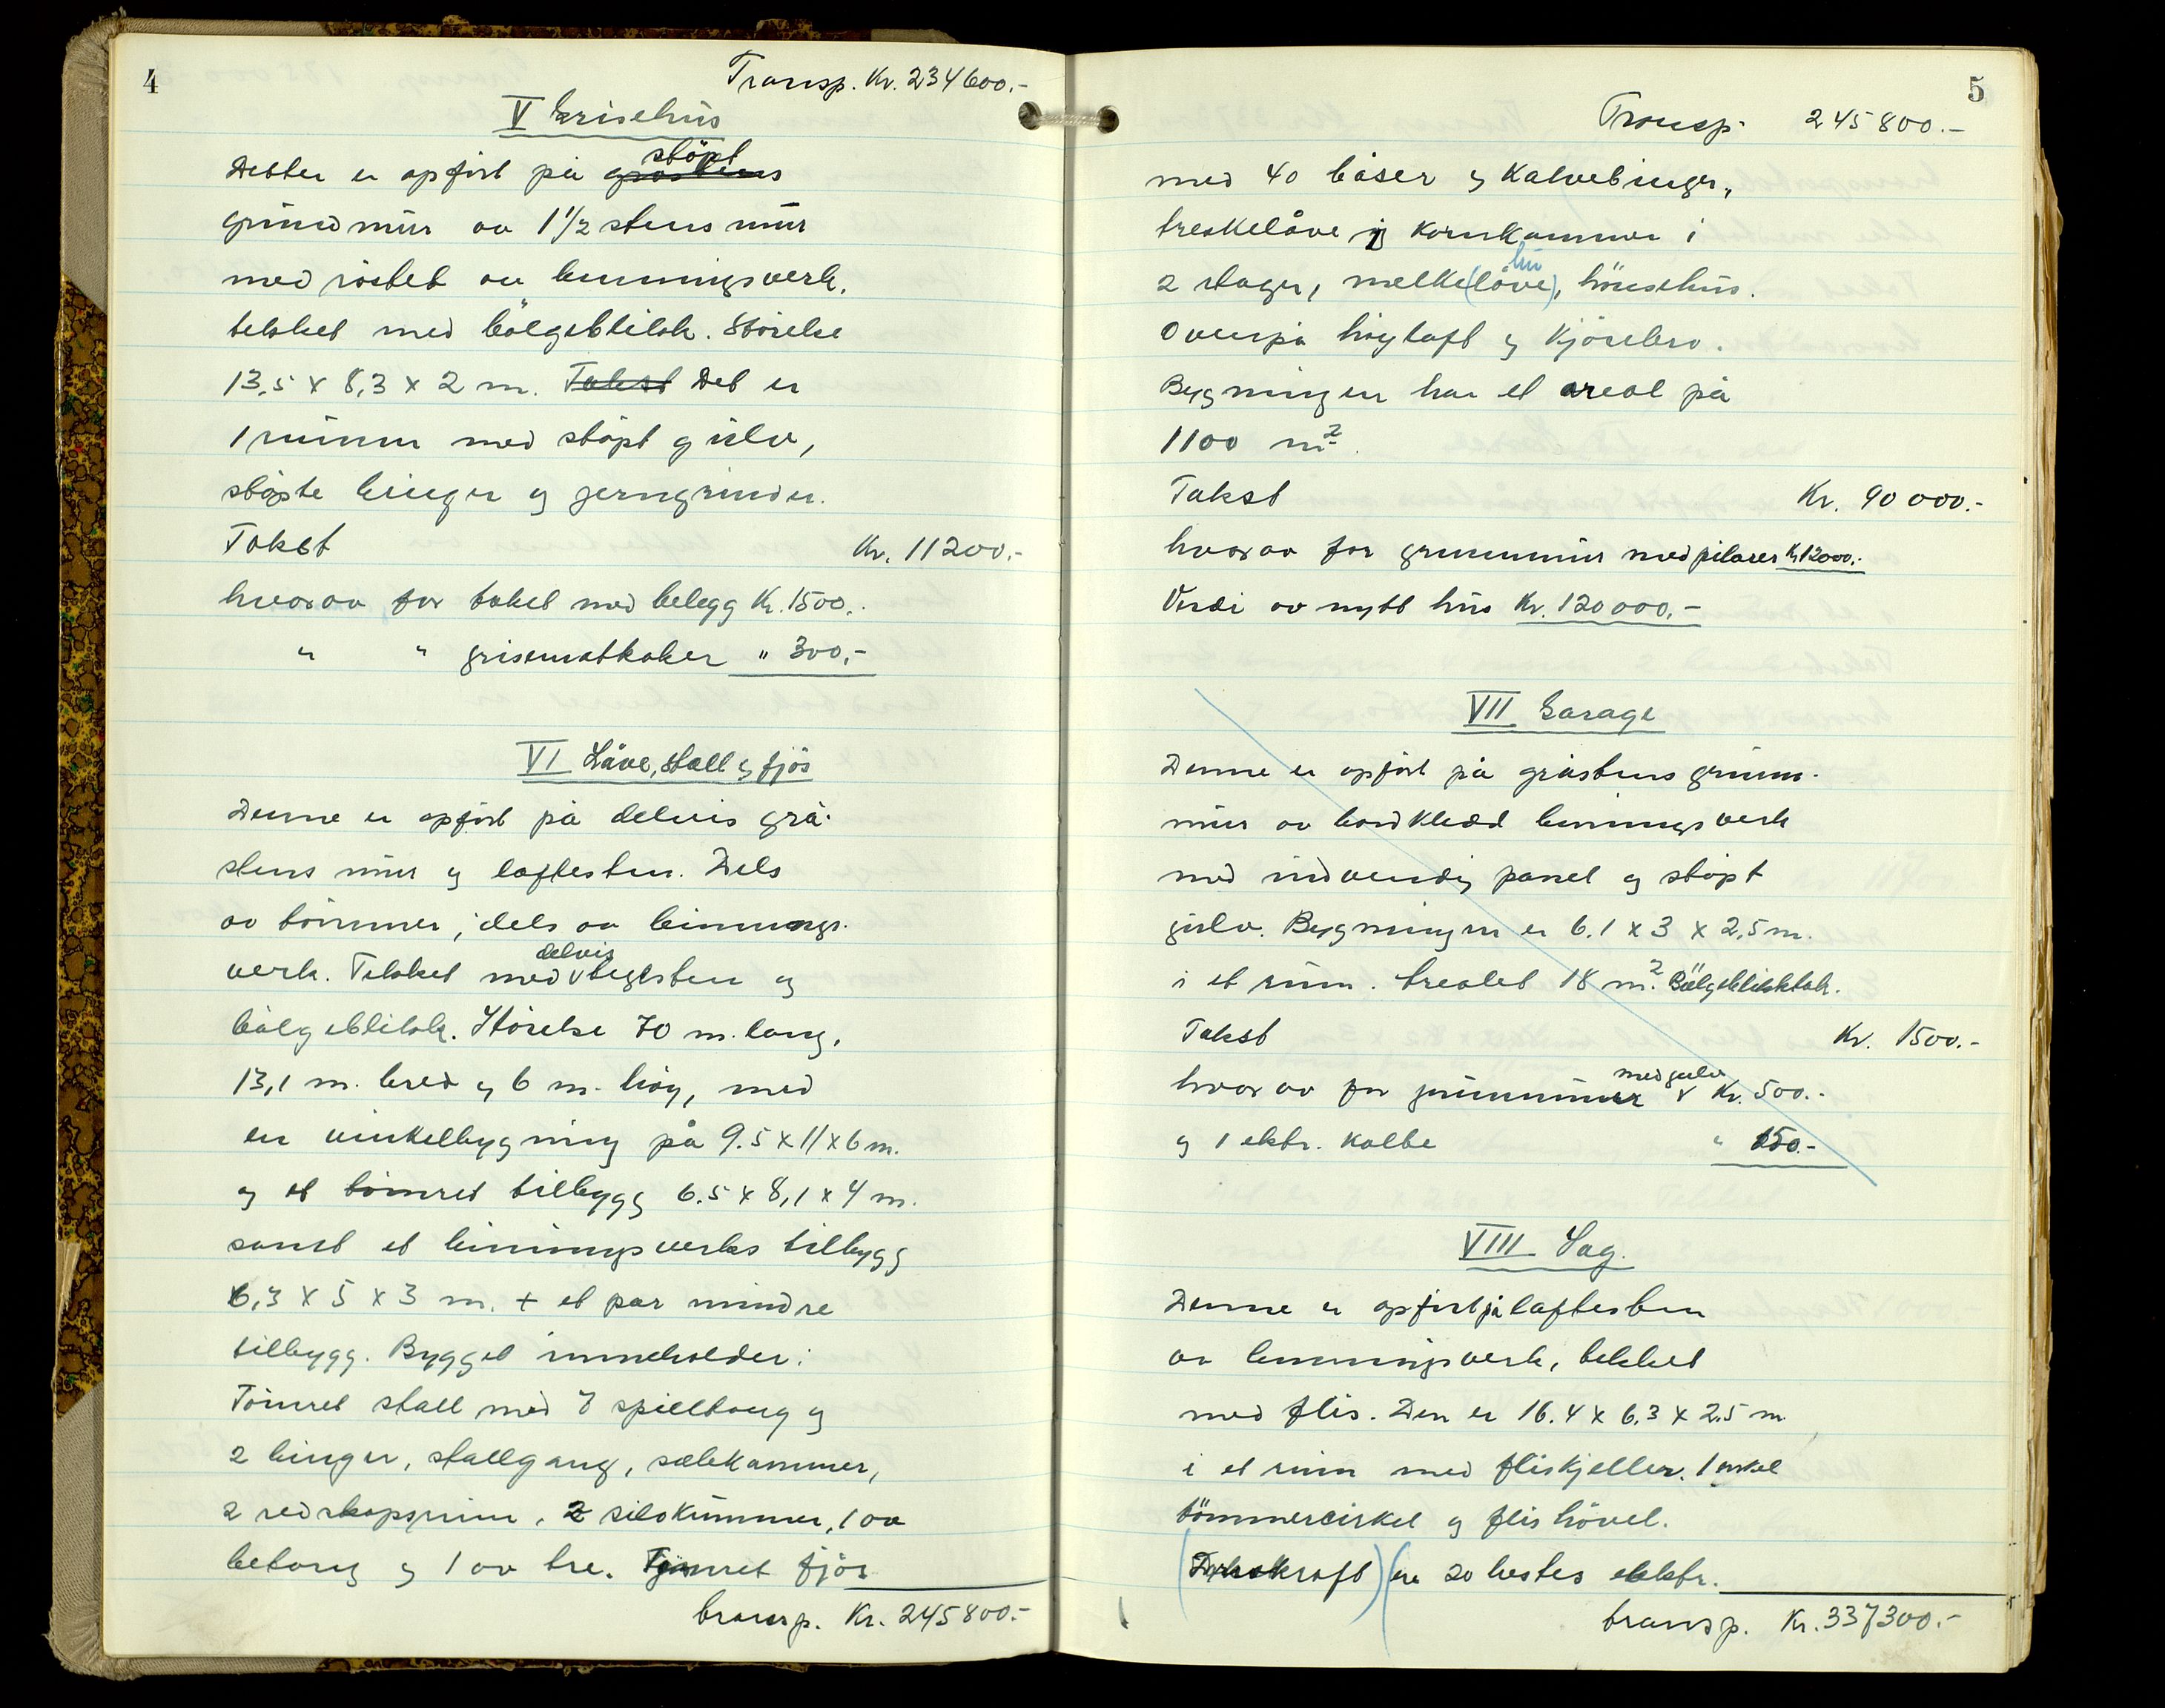 4
Transp. Kr. 234600.-
V Grisehus
støpt
Dette er opført på gråstens
grundmur av 1 1/2 stens mur
med røstet av binningsverk,
tekket med bølgeblikk. Størelse
13,5 x 8,3 x 2 m. Takst Det er
1 rum med støpt gulv,
støpte binger og jerngrinder.
Takst Kr. 11200.-
hvorav for taket med belegg Kr. 1500.-
" " grisematkoker " 300,-
VI Låve, stall og fjøs
Denne er opført på delvis grå-
stens mur og laftesten. Dels
av tømmer, dels av binnings-
delvis
verk. Tekket med v teglsten og
bølgeblikk. Størelse 70 m. lang,
13,1 m. bred og 6 m. høy, med
en vinkelbygning på 9.5 x 11 x 6 m.
og et tømret tilbygg 6.5 x 8,1 x 4 m.
samt et binningsverks tilbygg
6,3 x 5 x 3 m. + et par mindre
tilbygg. Bygget inneholder:
Tømret stall med 7 spilltaug og
2 binger, stallgang, selekammer,
2 redskapsrum, 2 silokummer, 1 av
betong og 1 av tre. Tømret fjøs
transp. Kr. 245800.-
5
Transp. 245800.-
med 40 båser og Kalvebinger,
treskelåve og Kornkammer i
bu
2 etager, melke(låve), hønsehus.
Ovenpå høyloft og Kjørebro.
Bygningen har et areal på
1100 m2.
Takst Kr. 90000.-
hvorav for grunnmur med pilarer Kr 12000.-
Verdi av nytt hus Kr. 120000.-
VII Garage
Denne er opført på gråstens grunn-
mur av bordkledd binningsverk
med indvendig panel og støpt
gulv. Bygningen er 6.1 x 3 x 2,5 m.
i et rum. Arealet 18 m2. Bølgeblikktak.
Takst Kr. 1500.-
med gulv
hvorav for grunnmur v Kr. 500.-
og 1 elektr. Kolbe " 150.-
VIII Sag.
Denne er opført på laftesten
av binningsverk, tekket
med flis. Den er 16.4 x 6.3 x 2.5 m
i et rum med fliskjeller. 1 enkel
tømmercirkel og flishøvel.
(Drivkraft) (en 20 hestes elektr.
transp. Kr. 337300.-